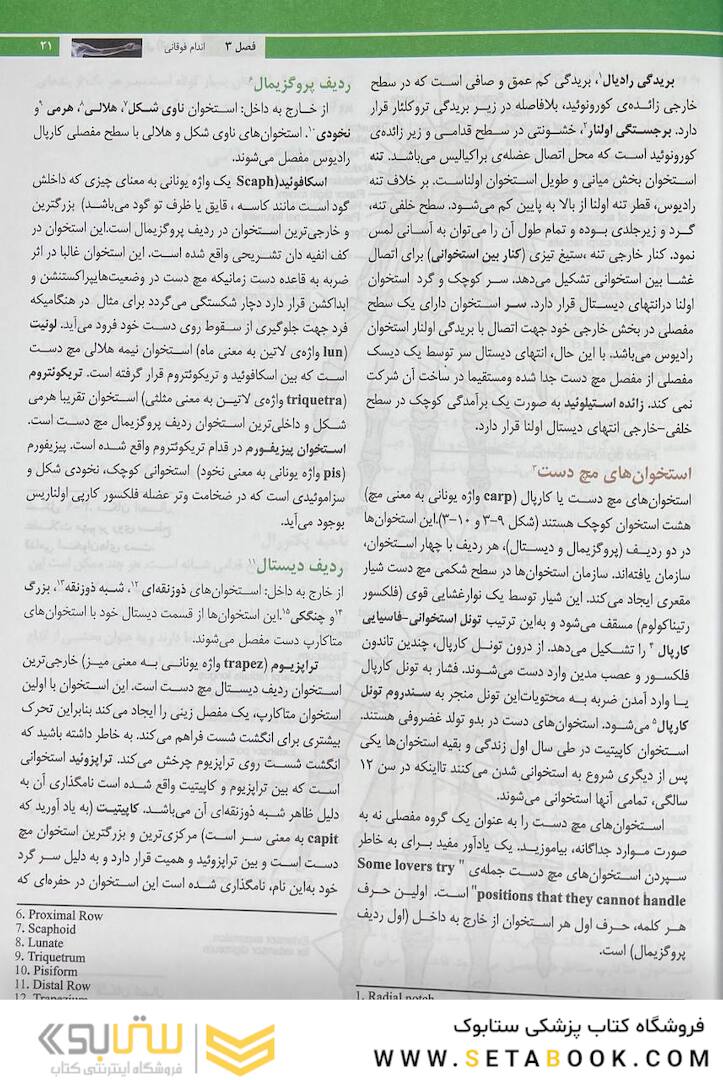 فصل ۳ اندام فوقانی ۲۱
بریدگی رادیال۱، بریدگی کم عمق و صافی است که در سطح
خارجی زائده‌ی کورونوئید، بلافاصله در زیر بریدگی تروکلئار قرار
دارد. برجستگی اولنار۲، خشونتی در سطح قدامی و زیر زائده‌ی
کورونوئید است که محل اتصال عضله‌ی براکیالیس می‌باشد. تنه
استخوان بخش میانی و طویل استخوان اولناست. بر خلاف تنه
رادیوس، قطر تنه اولنا از بالا به پایین کم می‌شود. سطح خلفی تنه،
گرد و زیرجلدی بوده و تمام طول آن را می‌توان به آسانی لمس
نمود. کنار خارجی تنه ،ستیغ تیزی (کنار بین استخوانی) برای اتصال
غشا بین استخوانی تشکیل می‌دهد. سر کوچک و گرد استخوان
اولنا درانتهای دیستال قرار دارد. سر استخوان دارای یک سطح
مفصلی در بخش خارجی خود جهت اتصال با بریدگی اولنار استخوان
رادیوس می‌باشد. با این حال، انتهای دیستال سر توسط یک دیسک
مفصلی از مفصل مچ دست جدا شده ومستقیما در ساخت آن شرکت
نمی کند. زائده استیلوئید به صورت یک برآمدگی کوچک در سطح
خلفی-خارجی انتهای دیستال اولنا قرار دارد.
استخوان‌های مچ دست۳
استخوان‌های مچ دست یا کارپال (carp واژه یونانی به معنی مچ)
هشت استخوان کوچک هستند (شکل ۹-۳ و ۱۰-۳).این استخوان‌ها
در دو ردیف (پروگزیمال و دیستال)، هر ردیف با چهار استخوان،
سازمان یافته‌اند. سازمان استخوان‌ها در سطح شکمی مچ دست شیار
مقعری ایجاد می‌کند. این شیار توسط یک نوارغشایی قوی (فلکسور
رتیناکولوم) مسقف می‌شود و به‌این ترتیب تونل استخوانی-فاسیایی
کارپال ۴ را تشکیل می‌دهد. از درون تونل کارپال، چندین تاندون
فلکسور و عصب مدین وارد دست می‌شوند. فشار به تونل کارپال
یا وارد آمدن ضربه به محتویات‌این تونل منجر به سندروم تونل
کارپال۵ می‌شود. استخوان‌های دست در بدو تولد غضروفی هستند.
استخوان کاپیتیت در طی سال اول زندگی و بقیه استخوان‌ها یکی
پس از دیگری شروع به استخوانی شدن می‌کنند تااینکه در سن ۱۲
سالگی، تمامی آنها استخوانی می‌شوند.
استخوان‌های مچ دست را به عنوان یک گروه مفصلی نه به
صورت موارد جداگانه، بیاموزید. یک یادآور مفید برای به خاطر
سپردن استخوان‌های مچ دست جمله‌ی " Some lovers try
positions that they cannot handle" است. اولین حرف
هر کلمه، حرف اول هر استخوان از خارج به داخل (اول ردیف
پروگزیمال) است.
1. Radial notch
ردیف پروگزیمال۶
از خارج به داخل: استخوان ناوی شکل۷، هلالی۸، هرمی ۹و
نخودی ۱۰. استخوان‌های ناوی شکل و هلالی با سطح مفصلی کارپال
رادیوس مفصل می‌شوند.
اسکافوئید(Scaph یک واژه یونانی به معنای چیزی که داخلش
گود است مانند کاسه ، قایق یا ظرف تو گود می‌باشد) بزرگترین
و خارجی‌ترین استخوان در ردیف پروگزیمال است.این استخوان در
کف انفیه دان تشریحی واقع شده است. این استخوان غالبا در اثر
ضربه به قاعده دست زمانیکه مچ دست در وضعیت‌هایپراکستنشن و
ابداکشن قرار دارد دچار شکستگی می‌گردد برای مثال در هنگامیکه
فرد جهت جلوگیری از سقوط روی دست خود فرود می‌آید. لونیت
(lun واژه‌ی لاتین به معنی ماه) استخوان نیمه هلالی مچ دست
است که بین اسکافوئید و تریکوئتروم قرار گرفته است. تریکوئتروم
(triquetra واژه‌ی لاتین به معنی مثلثی) استخوان تقریبا هرمی
شکل و داخلی‌ترین استخوان ردیف پروگزیمال مچ دست است.
استخوان پیزیفورم در قدام تریکوئتروم واقع شده است. پیزیفورم
(pis واژه یونانی به معنی نخود) استخوانی کوچک، نخودی شکل و
سزاموئیدی است که در ضخامت وتر عضله فلکسور کارپی اولناریس
بوجود می‌آید.
ردیف دیستال۱۱
از خارج به داخل: استخوان‌های ذوزنقه‌ای ۱۲، شبه ذوزنقه۱۳، بزرگ
۱۴و چنگکی ۱۵.این استخوان‌ها از قسمت دیستال خود با استخوان‌های
متاکارپ دست مفصل می‌شوند.
تراپزیوم (trapez واژه یونانی به معنی میز) خارجی‌ترین
استخوان ردیف دیستال مچ دست است. این استخوان با اولین
استخوان متاکارپ، یک مفصل زینی را ایجاد می‌کند بنابراین تحرک
بیشتری برای انگشت شست فراهم می‌کند. به خاطر داشته باشید که
انگشت شست روی تراپزیوم چرخش می‌کند. تراپزوئید استخوانی
است که بین تراپزیوم و کاپیتیت واقع شده است نامگذاری آن به
دلیل ظاهر شبه ذوزنقه‌ای آن می‌باشد. کاپیتیت (به یاد آورید که
capit به معنی سر است) مرکزی‌ترین و بزرگترین استخوان مچ
دست است و بین تراپزوئید و همیت قرار دارد و به دلیل سر گرد
خود به‌این نام، نامگذاری شده است این استخوان در حفره‌ای که
6. Proximal Row
7. Scaphoid
8. Lunate
9. Triquetrum
10. Pisiform
11. Distal Row
12. Trapezium
فروشگاه کتاب پزشکی ستابوک
WWW.SETABOOK.COM
ستابوک
فروشگاه اینترنتی کتاب